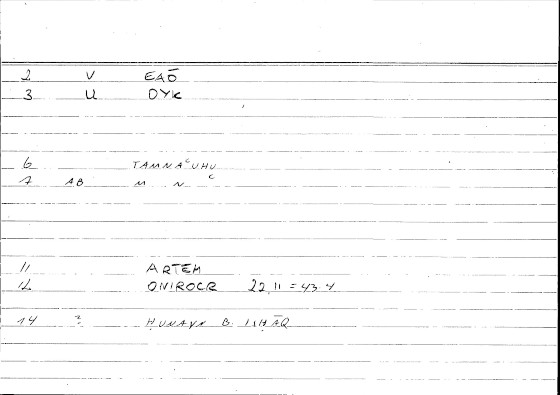 2 V EAŌ
3 U DYK
6 TAMNAᶜUHU
7 AB M . N ᶜ
11 ARTEM
12 ONIROCR 22,11 = 43.4
14 ? ḤUNAYN B. ISḤĀQ